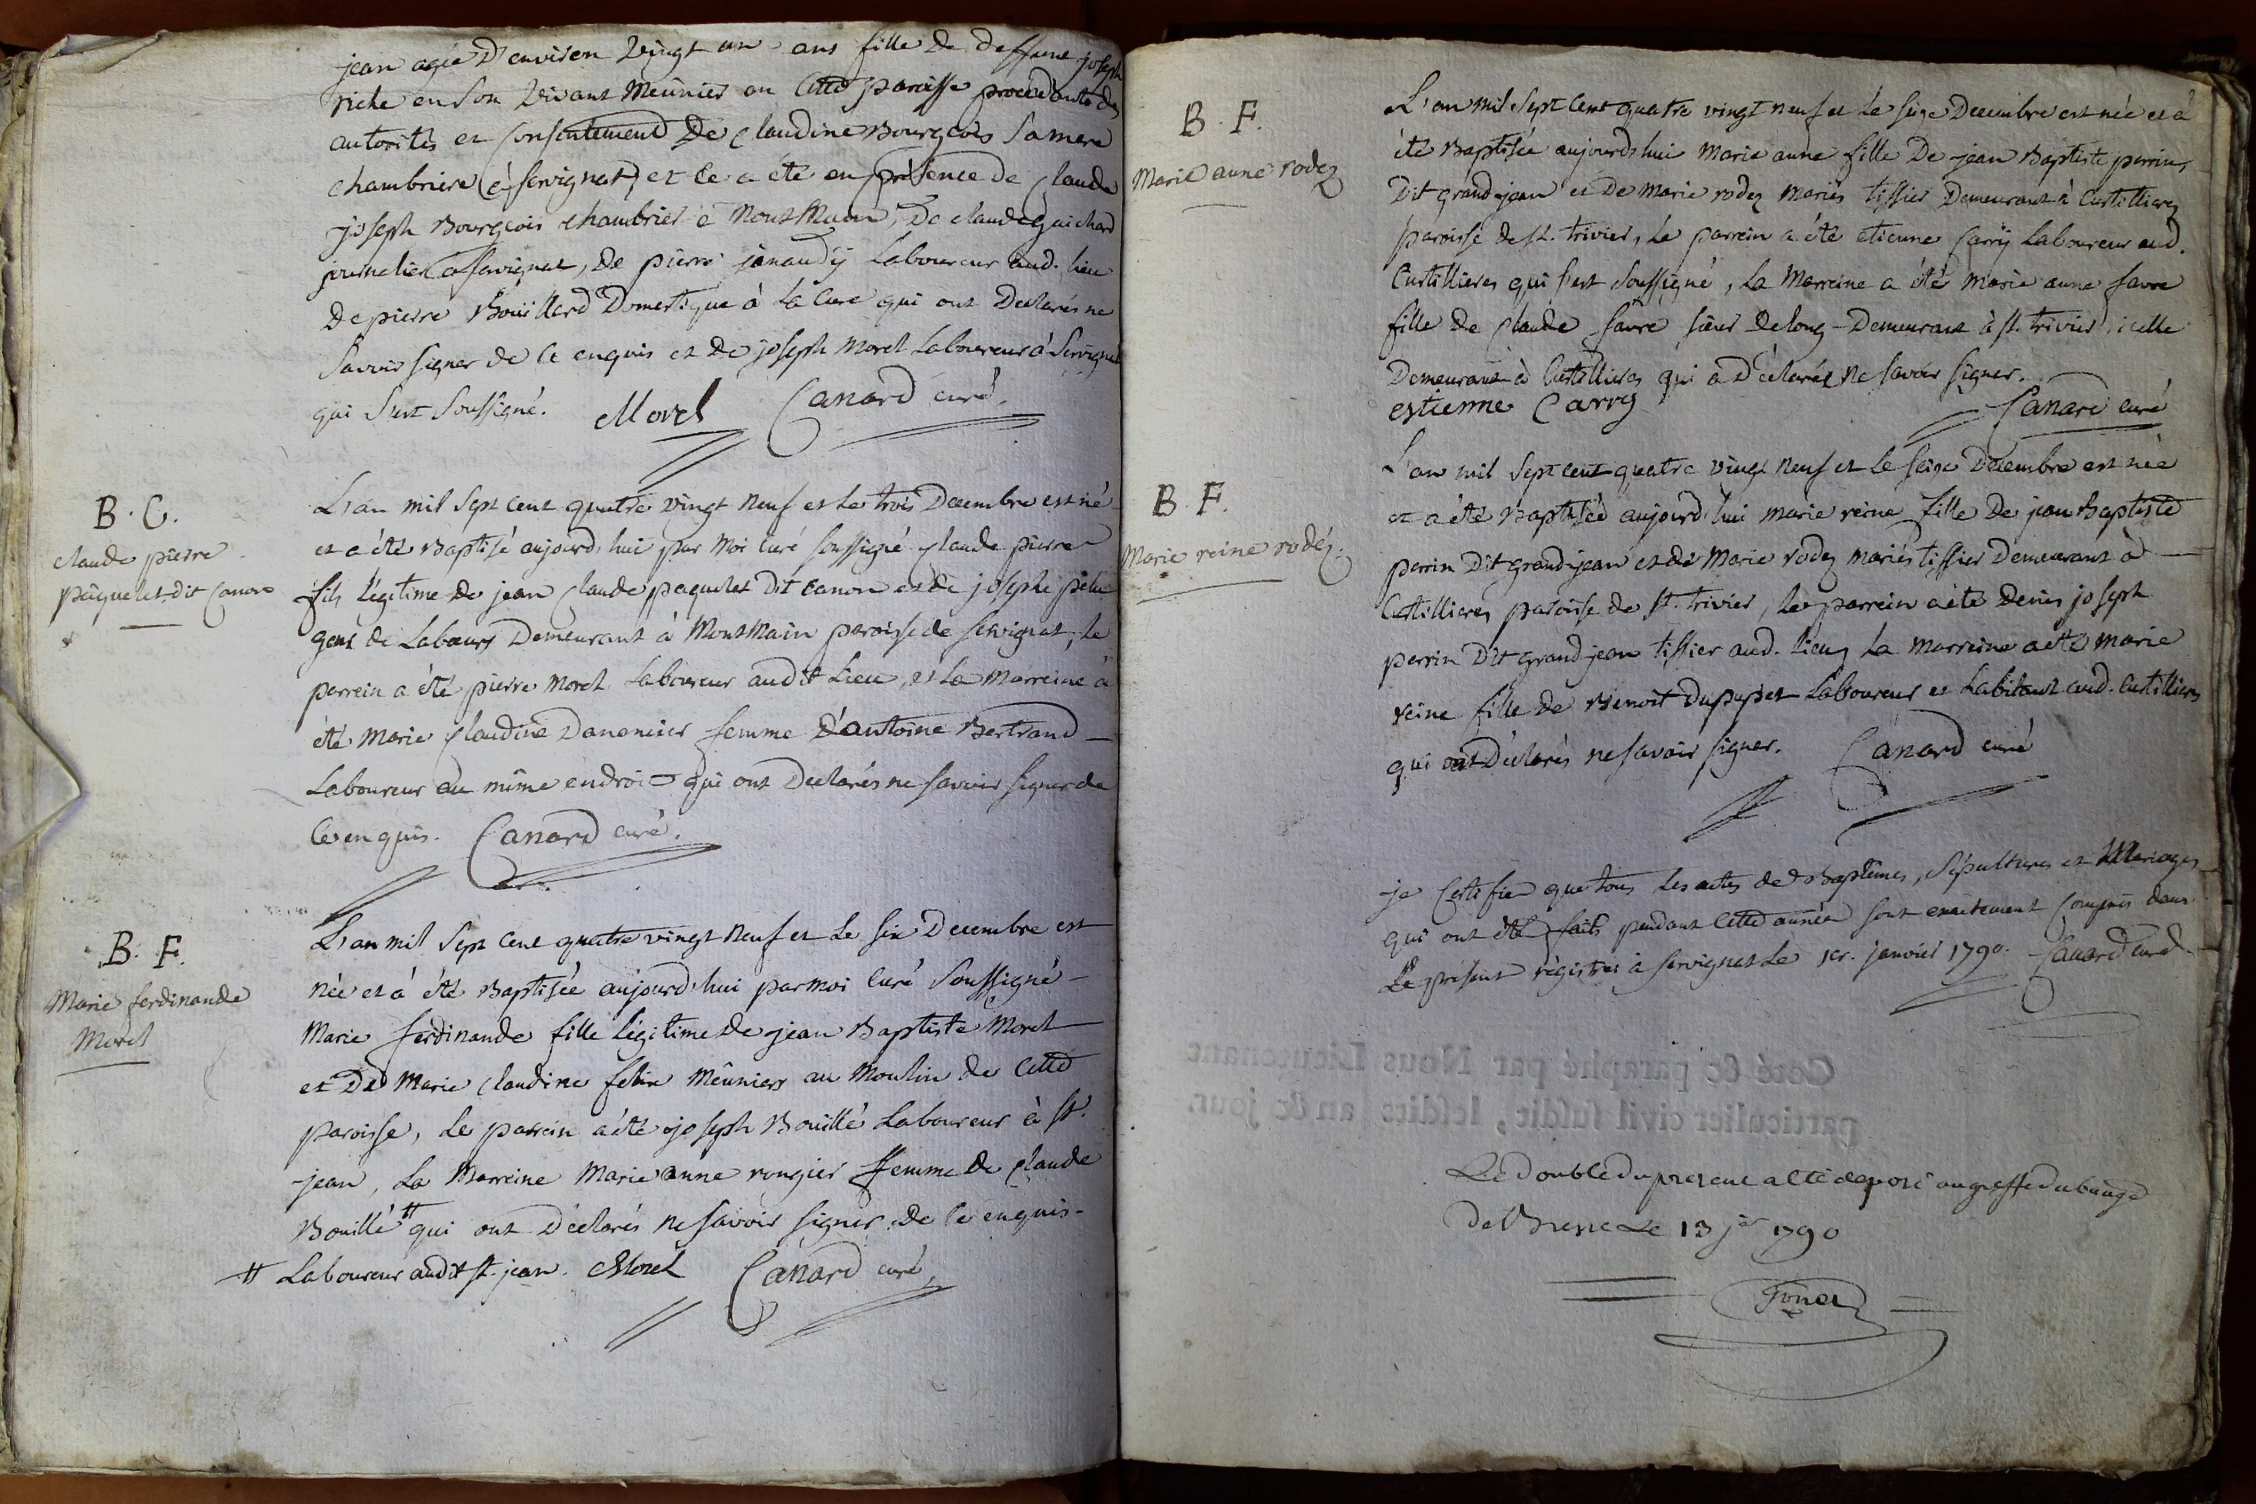 jean agée D'environ Vingt un ans fille de deffunt joseph
piche en son vivant Meûnier en Cette paroisse procédante des
autorités et consentement De Claudine Bourgeois Sa mere
chambriere à servignat, et Ce a été en présence de Claude
joseph Bourgeois chambrier à MontMain, De claude Guichard
journalier à savignat, de pierre janaudÿ Laboureur aud. lieu
De pierre Bouillard Domestique à La Cure qui ont Declarés ne
Savoir signer de Ce enquis et De joseph Morel Laboureur à Servignat
qui S'est Soussigné. Morel Canard curé.
B. C.
claude pierre
pâquelet dit Canon
L'an mil Sept Cent quatre vingt neuf et le trois Decembre est né
et a été Baptisé aujourd'hui par Moi Curé soussigné Claude pierre
fils légitime de jean Claude paquelet Dit Canon et de josephe
gens de Labours Demeurant à MontMain paroisse de servignat, le
parrein a été pierre Morel Laboureur audit Lieu, et la Marreine à
été Marie Claudine Danancier femme d'antoine Bertrand
Laboureur au même endroit qui ont Declarés ne savoir signer de
Ce enquis. Canard curé.
B. F.
Marie ferdinande
Morel
L'an mil Sept Cent quatre vingt Neuf et Le six Decembre est
née et à été Baptisée aujourd'hui par moi Curé Soussigné
Marie ferdinande fille légitime de jean Baptiste Morel
et De Marie Claudine felix Meûniers au Moulin de Cette
paroisse, Le parrein a été joseph Bouillé Laboureur à St.
jean, La Marreine Marie anne rongier femme de Claude
Bouillé # qui ont Déclarés ne savoir signer De Ce enquis.
# Laboureur audit St. jean. Morel Canard curé
B. F.
Marie anne rodez
L'an mil Sept Cent quatre vingt neuf et Le seize Decembre est née et à
été Baptisée aujourd'hui Marie anne fille De jean Baptiste perrin,
Dit grand-jean et De Marie rodez mariés tissier Demeurant à Custillieres
paroisse de St. trivier, Le parrein a été etienne Carrÿ Laboureur aud.
Custillieres qui s'est Soussigné, La Marreine a été Marie anne favre
fille de Claude favre sieur Delong Demeurant à St. trivier, icelle
Demeurant à Custillieres qui à Déclarée Ne savoir signer.
estienne Carry Canard curé
B. F.
Marie reine rodéz.
L'an mil Sept Cent quatre vingt Neuf et Le seize Decembre est née
et a été Baptisée aujourd'hui Marie reine fille De jean Baptiste
perrin Dit grand-jean et de Marie rodez mariés tissier Demeurant à
Custillieres paroisse de St. trivier, Le parrein a été Denis joseph
perrin Dit grand jean tissier aud. lieu, La Marreine a été Marie
reine fille De Benoit Dupupet Laboureur et habitant aud. Custillieres
qui ont Déclarés ne savoir signer. Canard curé
je Certifie que tous Les actes de Baptêmes, Sépultures et Mariages
qui ont été faits pendant Cette année sont exactement Compris dans
Le présent régistre à servignat Le 1er. janvier 1790. Canard Curé
Coté & paraphé par Nous Lieutenant
particulier civil susdit, lesdits an & jour.
Le Double du present a eté deposé au greffe du bailliage
De Bresse Le 13 jer 1790